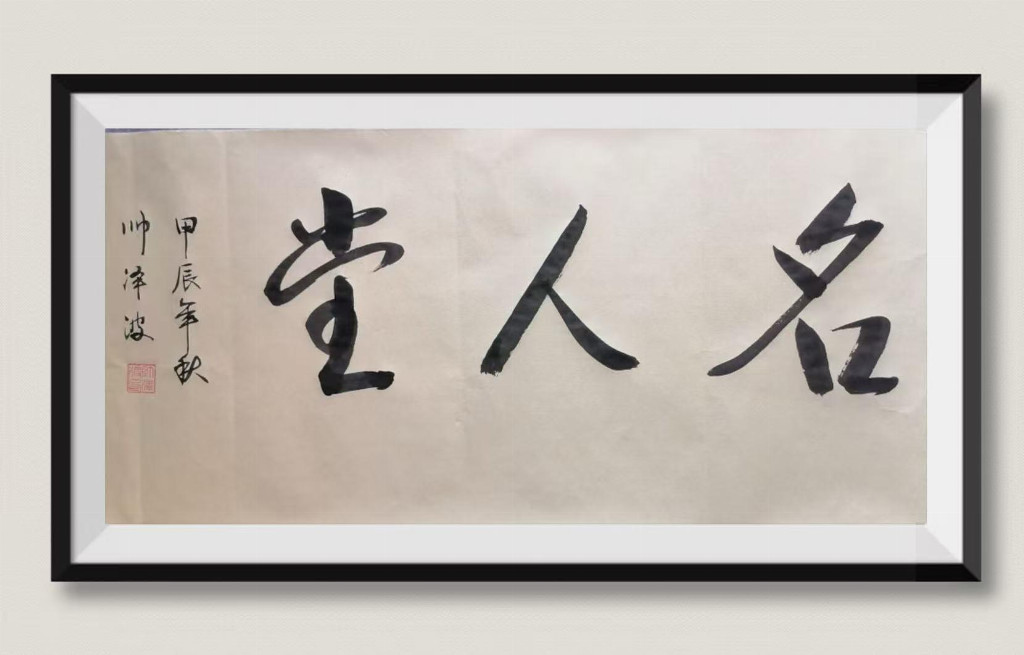 名人堂
甲辰年秋
帅泽波